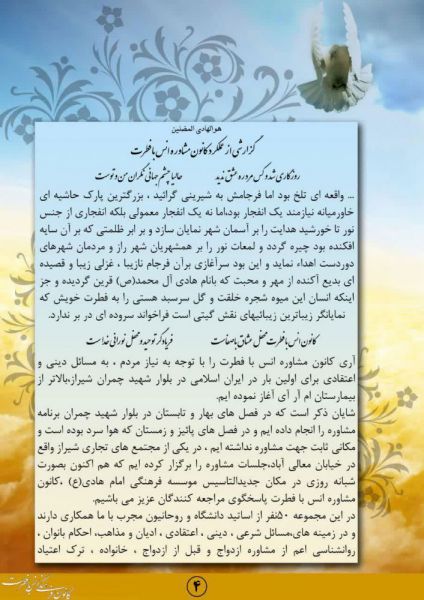 هوالهادی المضلین
گزارشی از عملکرد کانون مشاوره انس با فطرت
روزگاری شد و کس مرد ره عشق ندید حالیا چشم جهانی نگران من و توست
... واقعه ای تلخ بود اما فرجامش به شیرینی گرائید ، بزرگترین پارک حاشیه ای
خاورمیانه نیازمند یک انفجار بود،اما نه یک انفجار معمولی بلکه انفجاری از جنس
نور تا خورشید هدایت را بر آسمان شهر نمایان سازد و بر ابر ظلمتی که بر آن سایه
افکنده بود چیره گردد و لمعات نور را بر همشهریان شهر راز و مردمان شهرهای
دوردست اهداء نماید و این بود سرآغازی برآن فرجام نازیبا ، غزلی زیبا و قصیده
ای بدیع آکنده از مهر و محبت که بانام هادی آل محمد(ص) قرین گردیده و جز
اینکه انسان این میوه شجره خلقت و گل سرسبد هستی را به فطرت خویش که
نمایانگر زیباترین زیبائیهای نقش گیتی است فراخواند سروده ای در بر ندارد.
کانون انس با فطرت محفل عشاق باصفاست فریادگر توحید و محفل نورانی خداست
آری کانون مشاوره انس با فطرت را با توجه به نیاز مردم ، به مسائل دینی و
اعتقادی برای اولین بار در ایران اسلامی در بلوار شهید چمران شیراز،بالاتر از
بیمارستان ام آر آی آغاز نموده ایم.
شایان ذکر است که در فصل های بهار و تابستان در بلوار شهید چمران برنامه
مشاوره را انجام داده ایم و در فصل های پائیز و زمستان که هوا سرد بوده است و
مکانی ثابت جهت مشاوره نداشته ایم ، در یکی از مجتمع های تجاری شیراز واقع
در خیابان معالی آباد،جلسات مشاوره را برگزار کرده ایم که هم اکنون بصورت
شبانه روزی در مکان جدیدالتاسیس موسسه فرهنگی امام هادی(ع) ،کانون
مشاوره انس با فطرت پاسخگوی مراجعه کنندگان عزیز می باشیم.
در این مجموعه ۵۰نفر از اساتید دانشگاه و روحانیون مجرب با ما همکاری دارند
و در زمینه های،مسائل شرعی ، دینی ، اعتقادی ، ادیان و مذاهب، احکام بانوان ،
روانشناسی اعم از مشاوره ازدواج و قبل از ازدواج ، خانواده ، ترک اعتیاد
۴